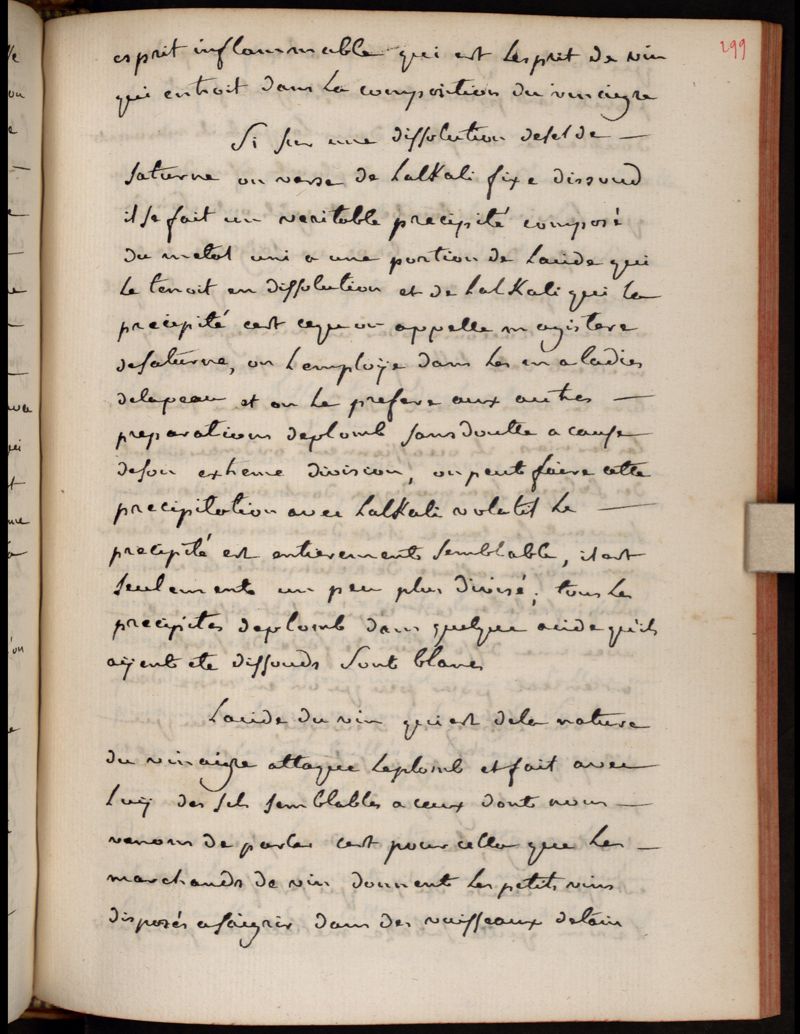 299
esprit inflammable qui est Lesprit de vin
qui entroit dans La composition du vinaigre
Si sur une dissolution desel de —
Saturne on verse de Lalkali fixe dissoud
il se fait un veritable precipité composé
du metal uni a une portion de Lacide qui
Le tenoit en dissolution et de Lalkali qui La
precipité cest ceque on appelle magistere
desaturne, on L'employe dans Les maladies
delapeau et on Le prefere aux autres —
preparations deplomb sansdoutte a cause
deson extreme division, on peut faire cette
precipitation avec Lalkali volatil Le —
precipité est entierement semblable, il est
seulement un peu plus divisé; tous Les
precipites deplomb dans quelque acide qu'ils
aÿent ete dissouds sont blancs
Lacide du vin qui est dela nature
du vinaigre attaque Leplomb et fait avec
Luÿ des sels semblables a ceux dont nous —
venons de parler cest pour cella que Les —
marchands de vin donnent Les petits vins
disposés asaigrir dans des vaisseaux detain